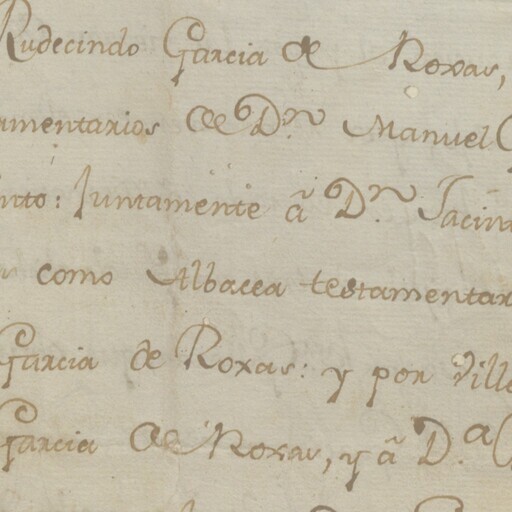 Rudecindo Garcia de Roxas,
amentarios de D.n Manuel
nto: Juntamente â D.n Jacin
como Albacea testamentar
Garcia de Roxas: y por Ville
Garcia de Roxas, y â D.a